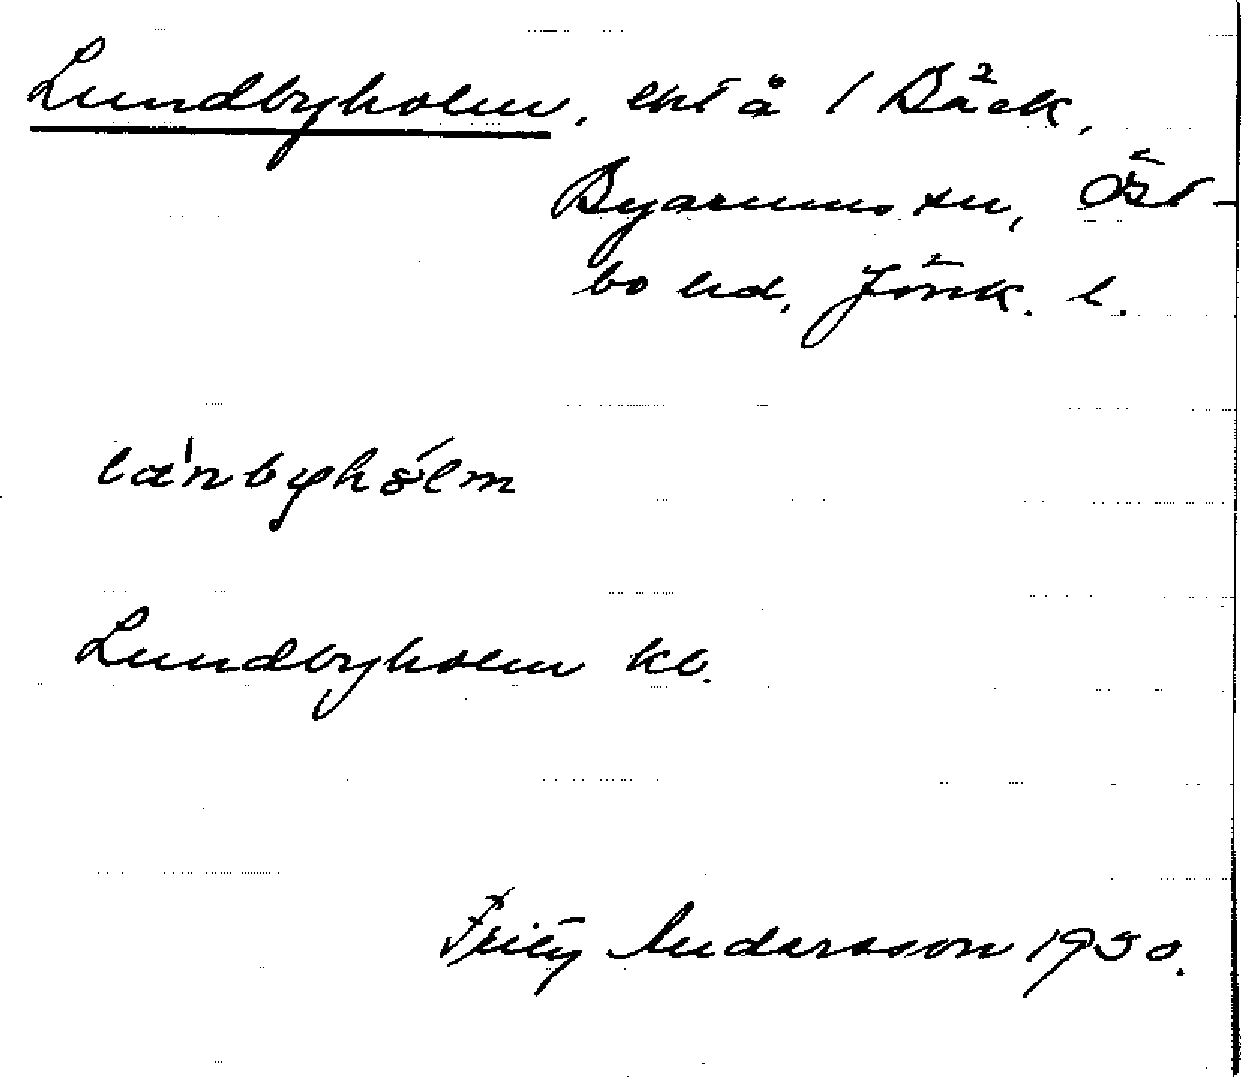 Lundbyholm, lht å 1 Bäck,
Byarums sn, Öst-
bo hd, Jönk. l.
Lundbyholm kb.
Fritz Andersson 1930.